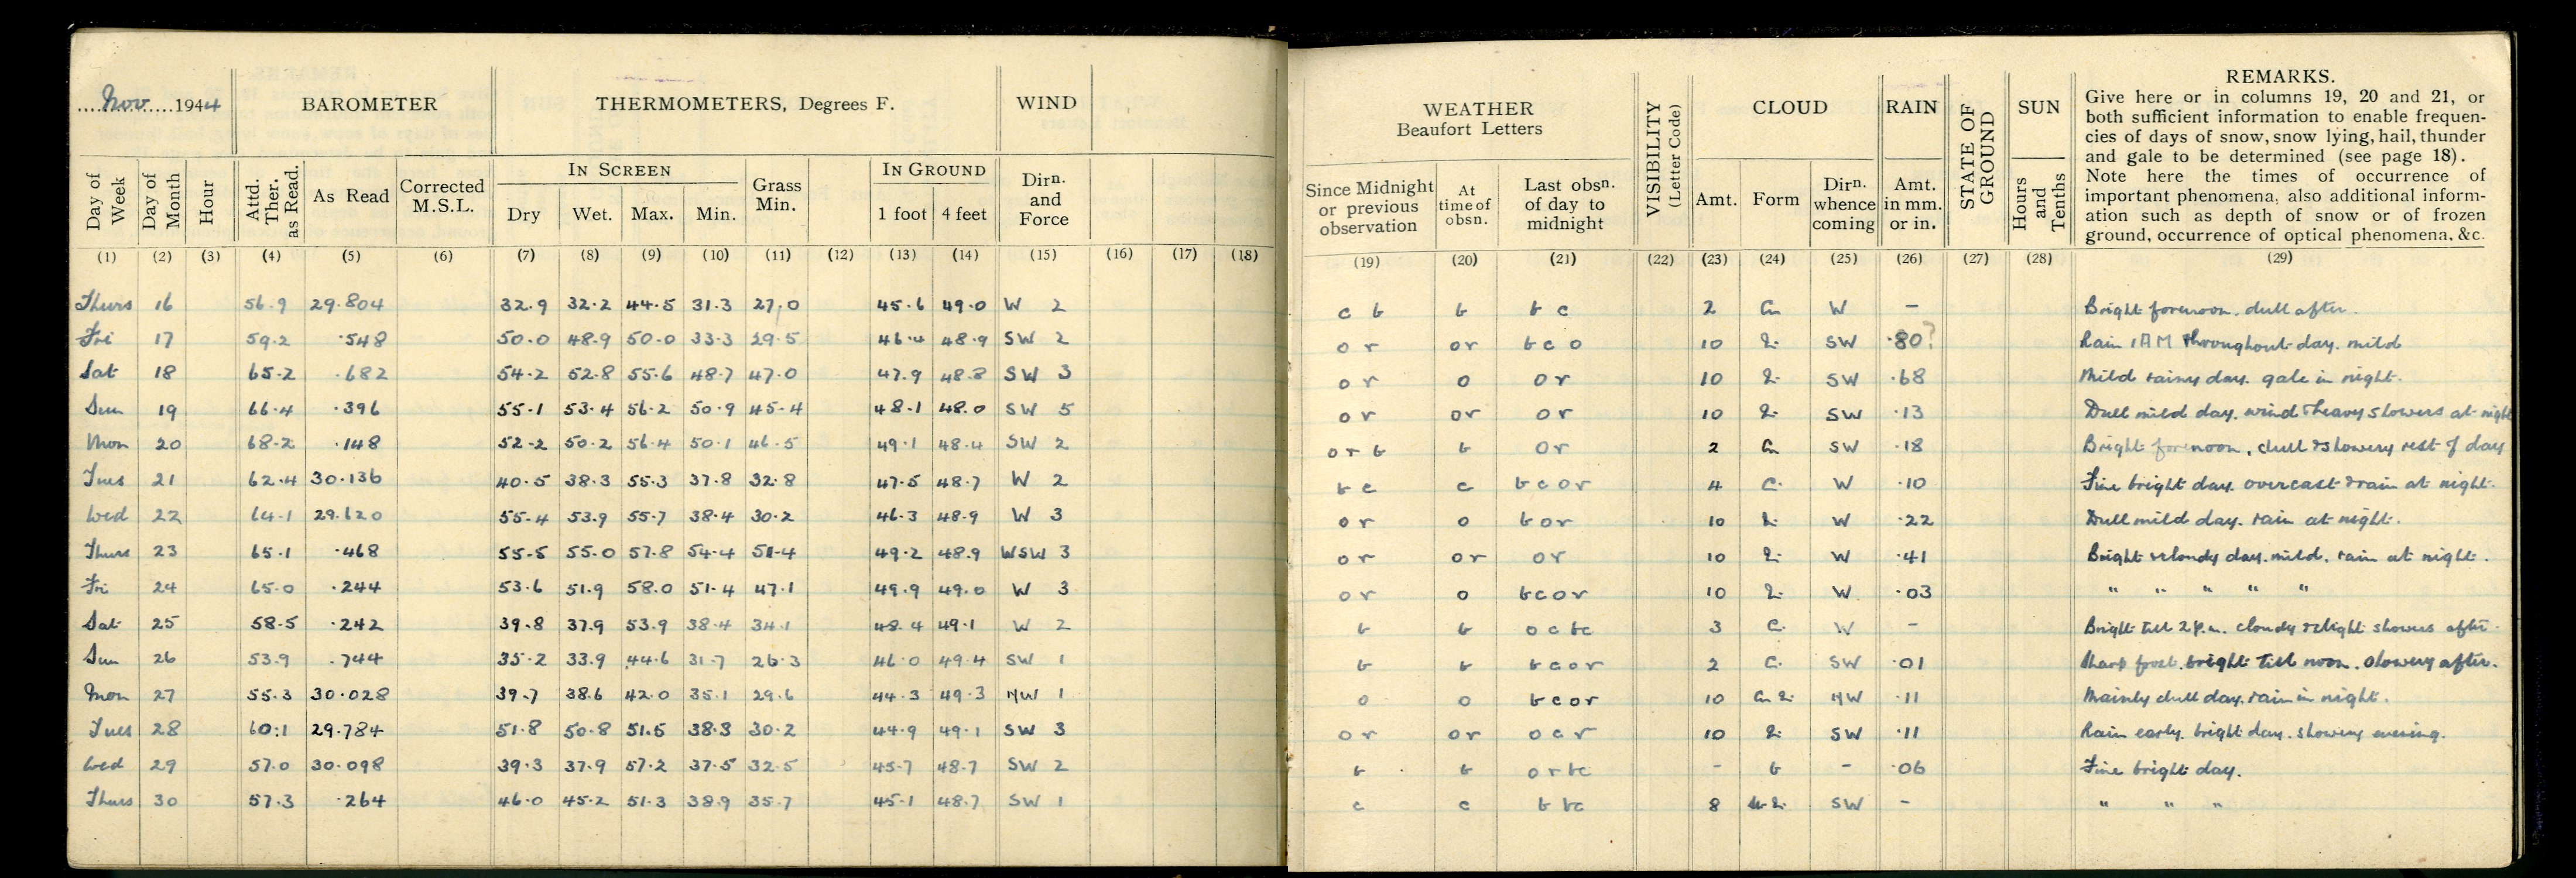 ....Nov.....1944 BAROMETER THERMOMETERS, Degrees F. WIND
Day of Week Day of Month Hour Attd. Ther. as Read. As Read Corrected M.S.L. IN SCREEN Dry Wet. Max. Min. Grass Min. IN GROUND 1 foot 4 feet Dirn. and Force
(1) (2) (3) (4) (5) (6) (7) (8) (9) (10) (11) (12) (13) (14) (15) (16) (17) (18)
Thurs 16 56.9 29.804 32.9 32.2 44.5 31.3 27.0 45.6 49.0 W 2
Fri 17 59.2 .548 50.0 48.9 50.0 33.3 29.5 46.4 48.9 SW 2
Sat 18 65.2 .682 54.2 52.8 55.6 48.7 47.0 47.9 48.8 SW 3
Sun 19 66.4 .396 55.1 53.4 56.2 50.9 45.4 48.1 48.0 SW 5
Mon 20 68.2 .148 52.2 50.2 56.4 50.1 46.5 49.1 48.4 SW 2
Tues 21 62.4 30.136 40.5 38.3 55.3 37.8 32.8 47.5 48.7 W 2
Wed 22 64.1 29.620 55.4 53.9 55.7 38.4 30.2 46.3 48.9 W 3
Thurs 23 65.1 .468 55.5 55.0 57.8 54.4 51.4 49.2 48.9 WSW 3
Fri 24 65.0 .244 53.6 51.9 58.0 51.4 47.1 49.9 49.0 W 3
Sat 25 58.5 .242 39.8 37.9 53.9 38.4 34.1 48.4 49.1 W 2
Sun 26 53.9 .744 35.2 33.9 44.6 31.7 26.3 46.0 49.4 SW 1
Mon 27 55.3 30.028 39.7 38.6 42.0 35.1 29.6 44.3 49.3 NW 1
Tues 28 60.1 29.784 51.8 50.8 51.5 38.3 30.2 44.9 49.1 SW 3
Wed 29 57.0 30.098 39.3 37.9 57.2 37.5 32.5 45.7 48.7 SW 2
Thurs 30 57.3 .264 46.0 45.2 51.3 38.9 35.7 45.1 48.7 SW 1
WEATHER Beaufort Letters VISIBILITY (Letter Code) CLOUD RAIN STATE OF GROUND SUN REMARKS.
Give here or in columns 19, 20 and 21, or
both sufficient information to enable frequen-
cies of days of snow, snow lying, hail, thunder
and gale to be determined (see page 18).
Note here the times of occurrence of
important phenomena, also additional inform-
ation such as depth of snow or of frozen
ground, occurrence of optical phenomena, &c.
Since Midnight or previous observation At time of obsn. Last obsn. of day to midnight Amt. Form Dirn. whence coming Amt. in mm. or in. Hours and Tenths
(19) (20) (21) (22) (23) (24) (25) (26) (27) (28) (29)
c b b b c 2 Cu W - Bright forenoon. dull after.
o r or b c o 10 SW .80? Rain 1AM throughout day. mild
o r o o r 10 SW .68 Mild rainy day. gale in night.
o r or o r 10 SW .13 Dull mild day. wind & heavy showers at night
o r b b o r 2 Cu SW .18 Bright forenoon, dull & showery rest of day
b c c b c o r 4 C. W .10 Fine bright day. overcast & rain at night.
o r o b o r 10 W .22 Dull mild day. rain at night.
o r or o r 10 W .41 Bright & cloudy day. mild. rain at night.
o r o b c o r 10 W .03 " " " " "
b b o c b c 3 C. W - Bright till 2 p.m. cloudy & light showers after.
b b b c o r 2 C. SW .01 Sharp frost. bright till noon. showery after.
o o b c o r 10 NW .11 Mainly dull day. rain in night.
o r or o c r 10 SW .11 Rain early. bright day. showery evening.
b b o r b c - b - .06 Fine bright day.
c c b b c 8 SW - " " "